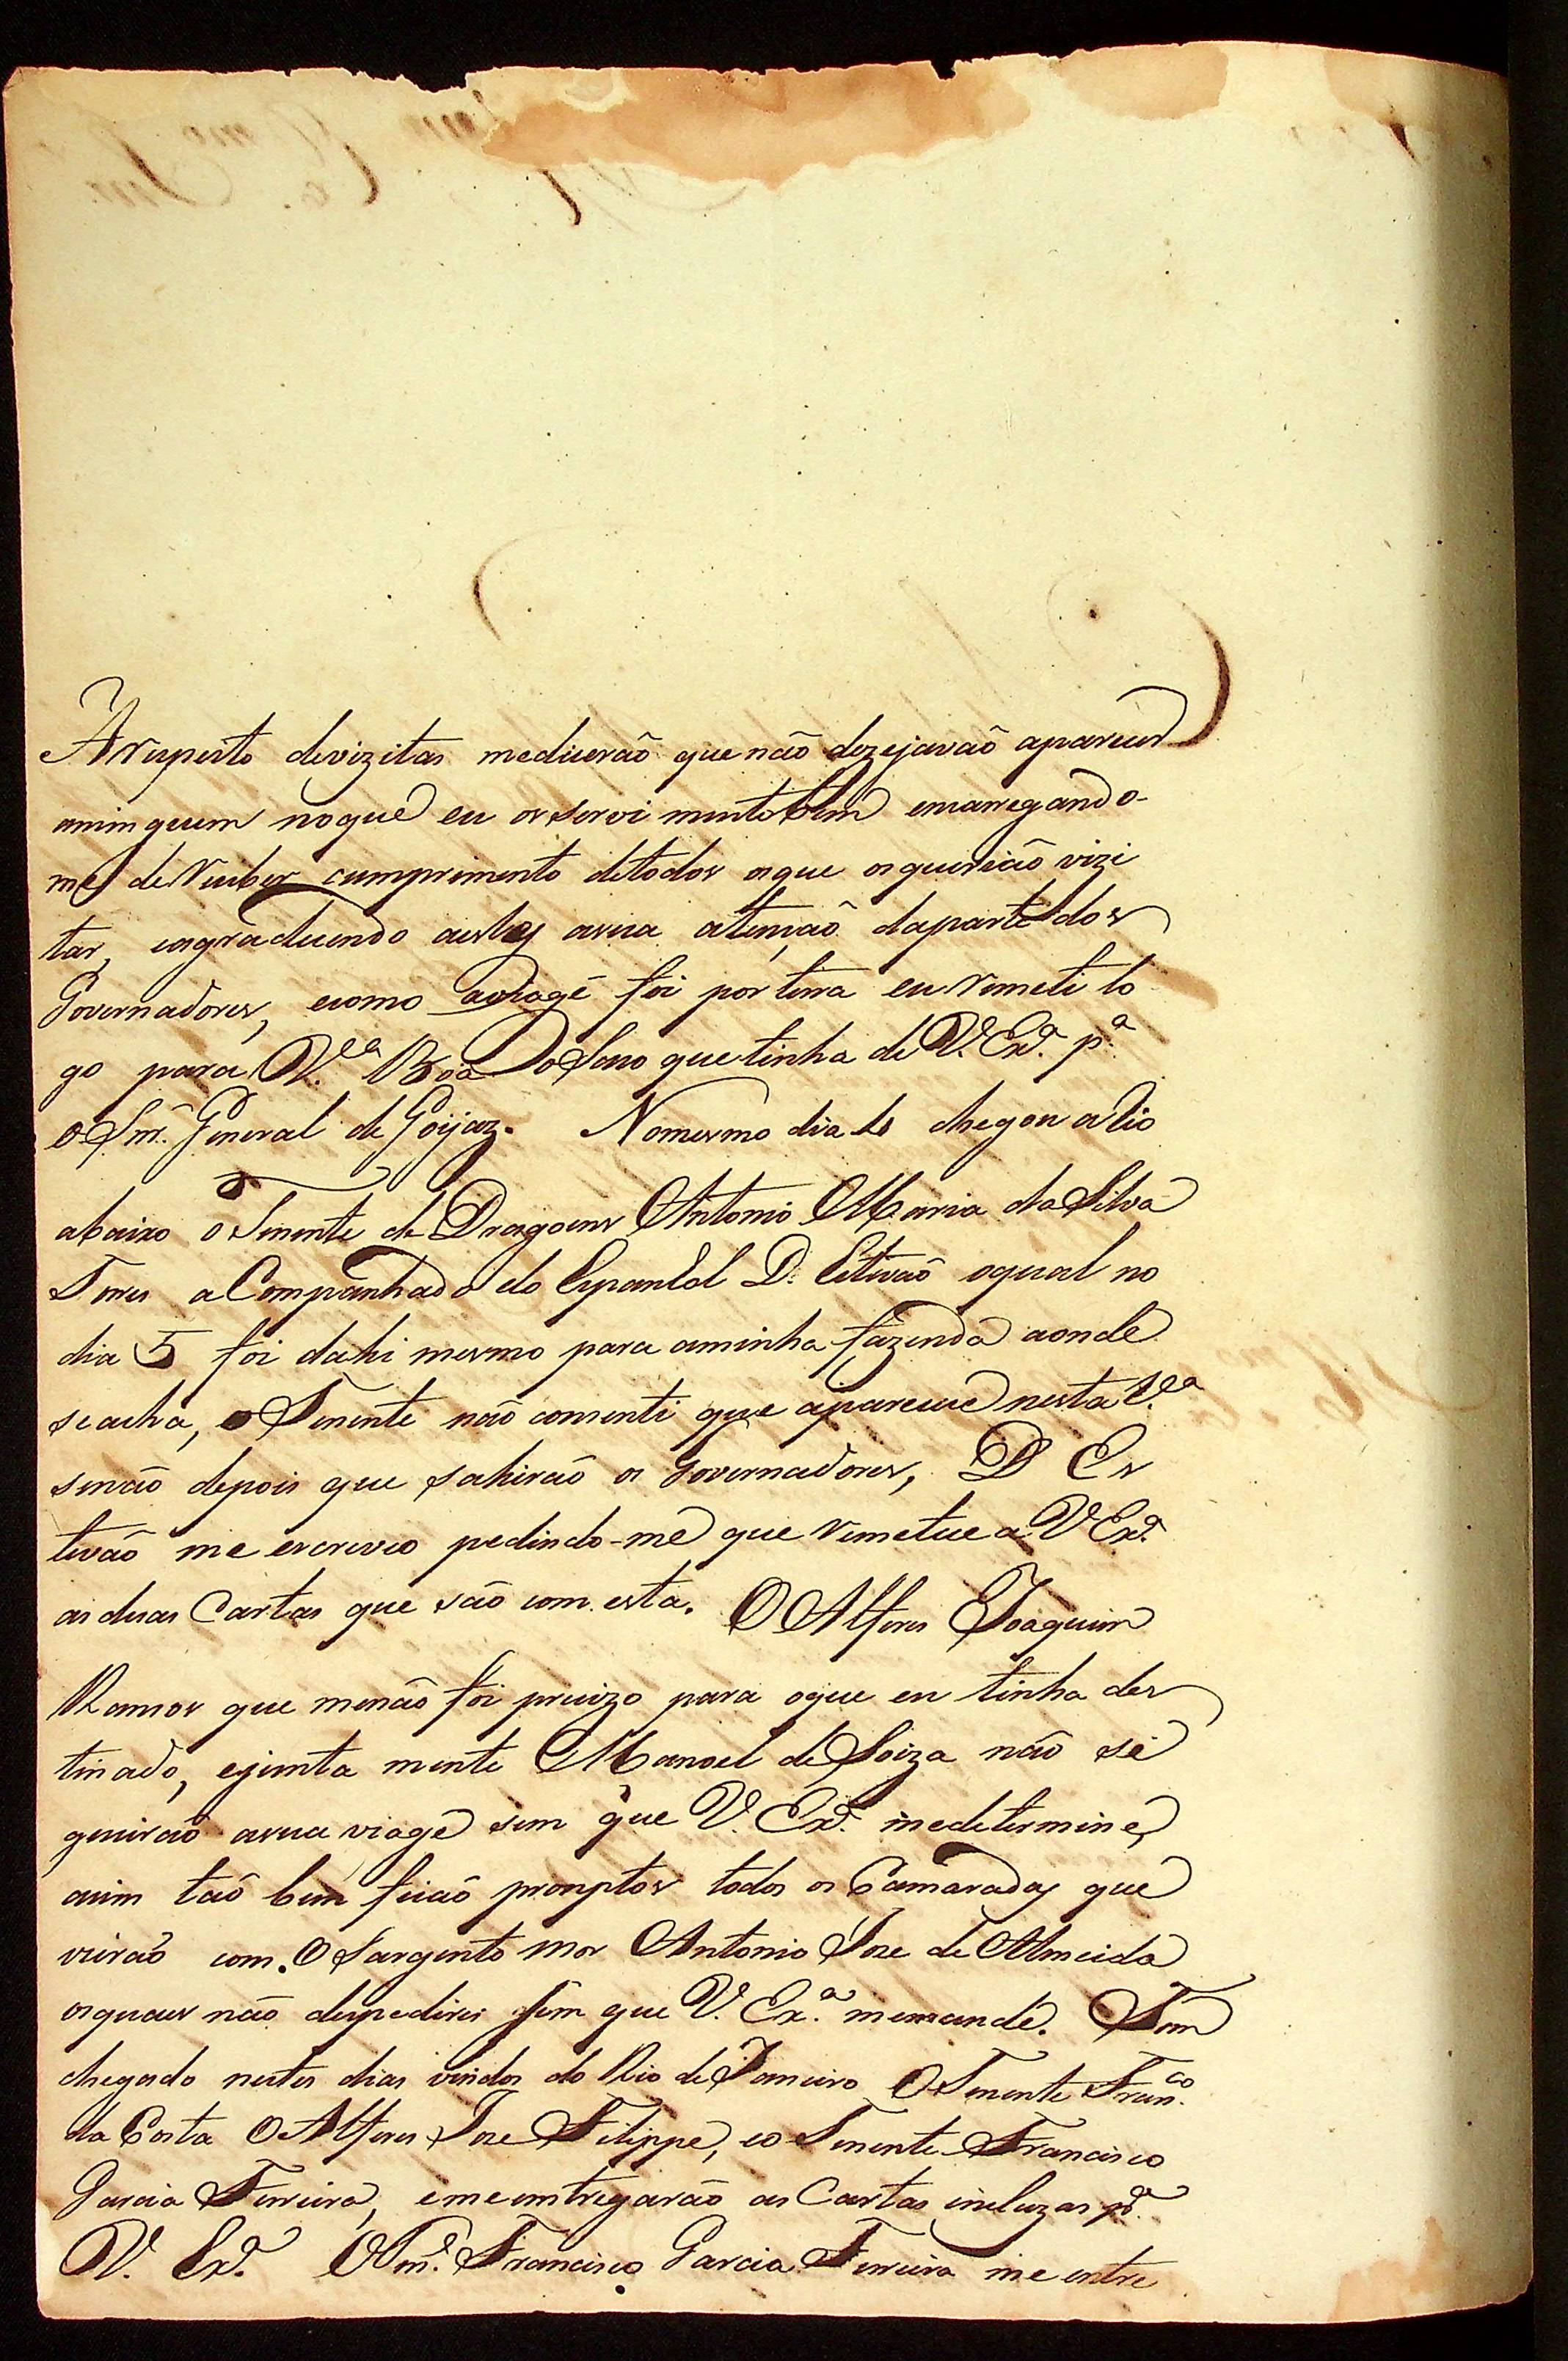 Arespeito devizitas mediserão que não dezejavão aparecer
aninguem noque eu osservi muito bem encarregando-
me de receber cumprimento detodos osque osquerião vizi
tar, eagradecendo aestes asua atenção daparte dos
Governadores, ecomo aviagē foi por terra eu remeti lo
go para V.ª Boa oSaco que tinha de V. Exª. pª.
o Snr. General de Goijaz. Nomesmo dia 4 chegou a Rio
abaixo o Tenente de Dragoens Antonio Maria da Silva
Torres aCompanhado do Espanhol D. Estivão oqual no
dia 5 foi dahi mesmo para aminha fazenda aonde
seacha, o Tenente não consenti que aparecece nesta V.ª
senão depois que sahirão os Governadores, D Es
tivão me escreveo pedindo-me que remetece a V Exª.
as duas Cartas que são com esta. O Alferes Joaquim
Ramos que menão foi precizo para oque eu tinha des
tinado, ejunta mente Manoel de Soiza não se
guirão asua viage sem que V. Exª. medetermine,
asim tão bem ficão promptos todos os Camaradas que
vierão com. O Sargento mor Antonio Joze de Almeida
osquaes não despedirei sem que V. Exª. memande. Tem
chegado nestes dias vindos do Rio de Janeiro O Tenente Fran.co
da Costa O Alferes Joze Filippe, eo Tenente Francisco
Garcia Ferreira, emeentregarão as Cartas incluzas pª.
V. Exª. O Tenᵉ. Francisco Garcia Ferreira me entre